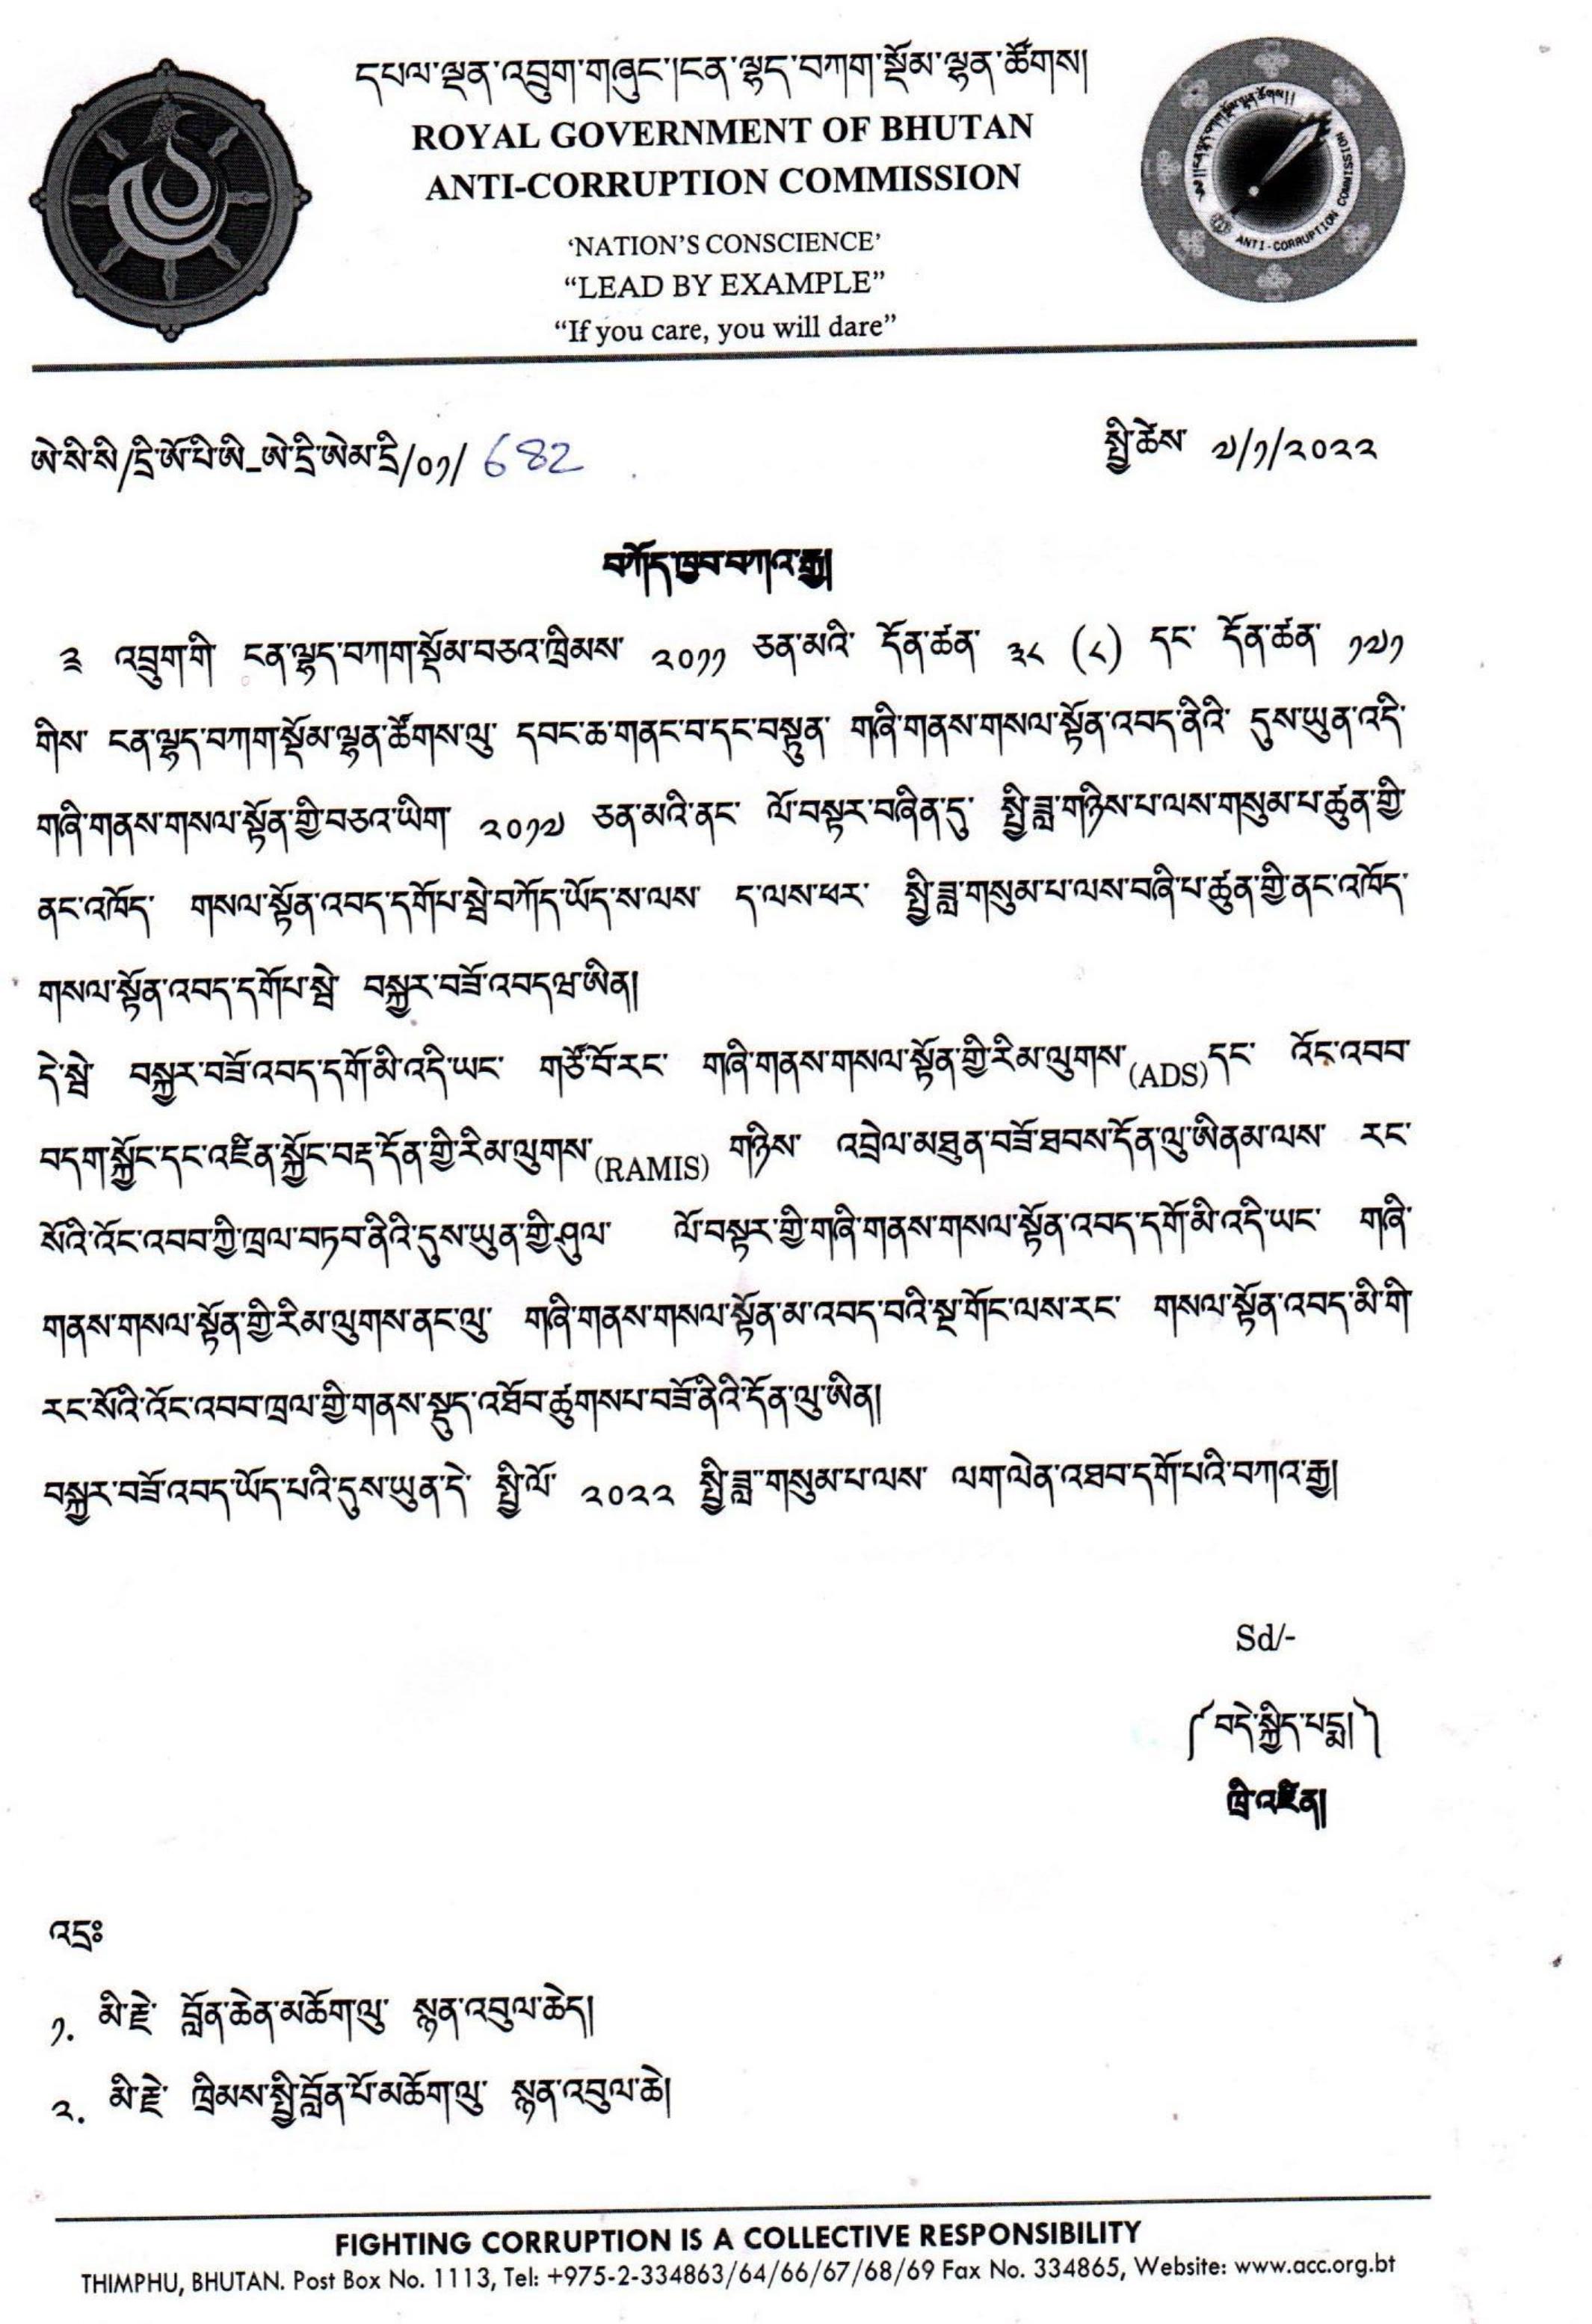 དཔལ་ལྡན་འབྲུག་གཞུང་།ངན་ལྷད་བཀག་སྡོམ་ལྷན་ཚོགས།
ROYAL GOVERNMENT OF BHUTAN
ANTI-CORRUPTION COMMISSION
‘NATION’S CONSCIENCE’
“LEAD BY EXAMPLE”
“If you care, you will dare”
ANTI-CORRUPTION COMMISSION
ཨེ་སི་སི/ཌི་ཨོ་པི་ཨི_ཨེ་ཌི་ཨེམ་ཌི/༠༡/ 682
སྤྱི་ཚེས་ ༧/༡/༢༠༢༢
བཀོད་ཁྱབ་བཀའ་རྒྱ།
༉ འབྲུག་གི་ ངན་ལྷད་བཀག་སྡོམ་བཅའ་ཁྲིམས་ ༢༠༡༡ ཅན་མའི་ དོན་ཚན་ ༣༨ (༨) དང་ དོན་ཚན་ ༡༧༡
གིས་ ངན་ལྷད་བཀག་སྡོམ་ལྷན་ཚོགས་ལུ་ དབང་ཆ་གནང་བ་དང་བསྟུན་ གཞི་གནས་གསལ་སྟོན་འབད་ནིའི་ དུས་ཡུན་འདི་
གཞི་གནས་གསལ་སྟོན་གྱི་བཅའ་ཡིག་ ༢༠༡༧ ཅན་མའི་ནང་ ལོ་བསྟར་བཞིན་དུ་ སྤྱི་ཟླ་གཉིས་པ་ལས་གསུམ་པ་ཚུན་གྱི་
ནང་འཁོད་ གསལ་སྟོན་འབད་དགོཔ་སྦེ་བཀོད་ཡོད་ས་ལས་ ད་ལས་ཕར་ སྤྱི་ཟླ་གསུམ་པ་ལས་བཞི་པ་ཚུན་གྱི་ནང་འཁོད་
གསལ་སྟོན་འབད་དགོཔ་སྦེ་ བསྐྱར་བཟོ་འབདཝ་ཨིན།
དེ་སྦེ་ བསྐྱར་བཟོ་འབད་དགོ་མི་འདི་ཡང་ གཙོ་བོ་རང་ གཞི་གནས་གསལ་སྟོན་གྱི་རིམ་ལུགས་(ADS)དང་ འོང་འབབ་
བདག་སྐྱོང་དང་འཛིན་སྐྱོང་བརྡ་དོན་གྱི་རིམ་ལུགས་(RAMIS) གཉིས་ འབྲེལ་མཐུན་བཟོ་ཐབས་དོན་ལུ་ཨིནམ་ལས་ རང་
སོའི་འོང་འབབ་ཀྱི་ཁྲལ་བཏབ་ནིའི་དུས་ཡུན་གྱི་ཤུལ་ ལོ་བསྟར་གྱི་གཞི་གནས་གསལ་སྟོན་འབད་དགོ་མི་འདི་ཡང་ གཞི་
གནས་གསལ་སྟོན་གྱི་རིམ་ལུགས་ནང་ལུ་ གཞི་གནས་གསལ་སྟོན་མ་འབད་བའི་སྔ་གོང་ལས་རང་ གསལ་སྟོན་འབད་མི་གི་
རང་སོའི་འོང་འབབ་ཁྲལ་གྱི་གནས་སྡུད་འཐོབ་ཚུགསཔ་བཟོ་ནིའི་དོན་ལུ་ཨིན།
བསྐྱར་བཟོ་འབད་ཡོད་པའི་དུས་ཡུན་དེ་ སྤྱི་ལོ་ ༢༠༢༢ སྤྱི་ཟླ་གསུམ་པ་ལས་ ལག་ལེན་འཐབ་དགོ་པའི་བཀའ་རྒྱ།
Sd/-
༼བདེ་སྐྱིད་པདྨ།༽
ཁྲི་འཛིན།
འདྲཿ
༡. མི་རྗེ་ བློན་ཆེན་མཆོག་ལུ་ སྙན་འབུལ་ཆེད།
༢. མི་རྗེ་ ཁྲིམས་སྤྱི་བློན་པོ་མཆོག་ལུ་ སྙན་འབུལ་ཆེ།
FIGHTING CORRUPTION IS A COLLECTIVE RESPONSIBILITY
THIMPHU, BHUTAN. Post Box No. 1113, Tel: +975-2-334863/64/66/67/68/69 Fax No. 334865, Website: www.acc.org.bt